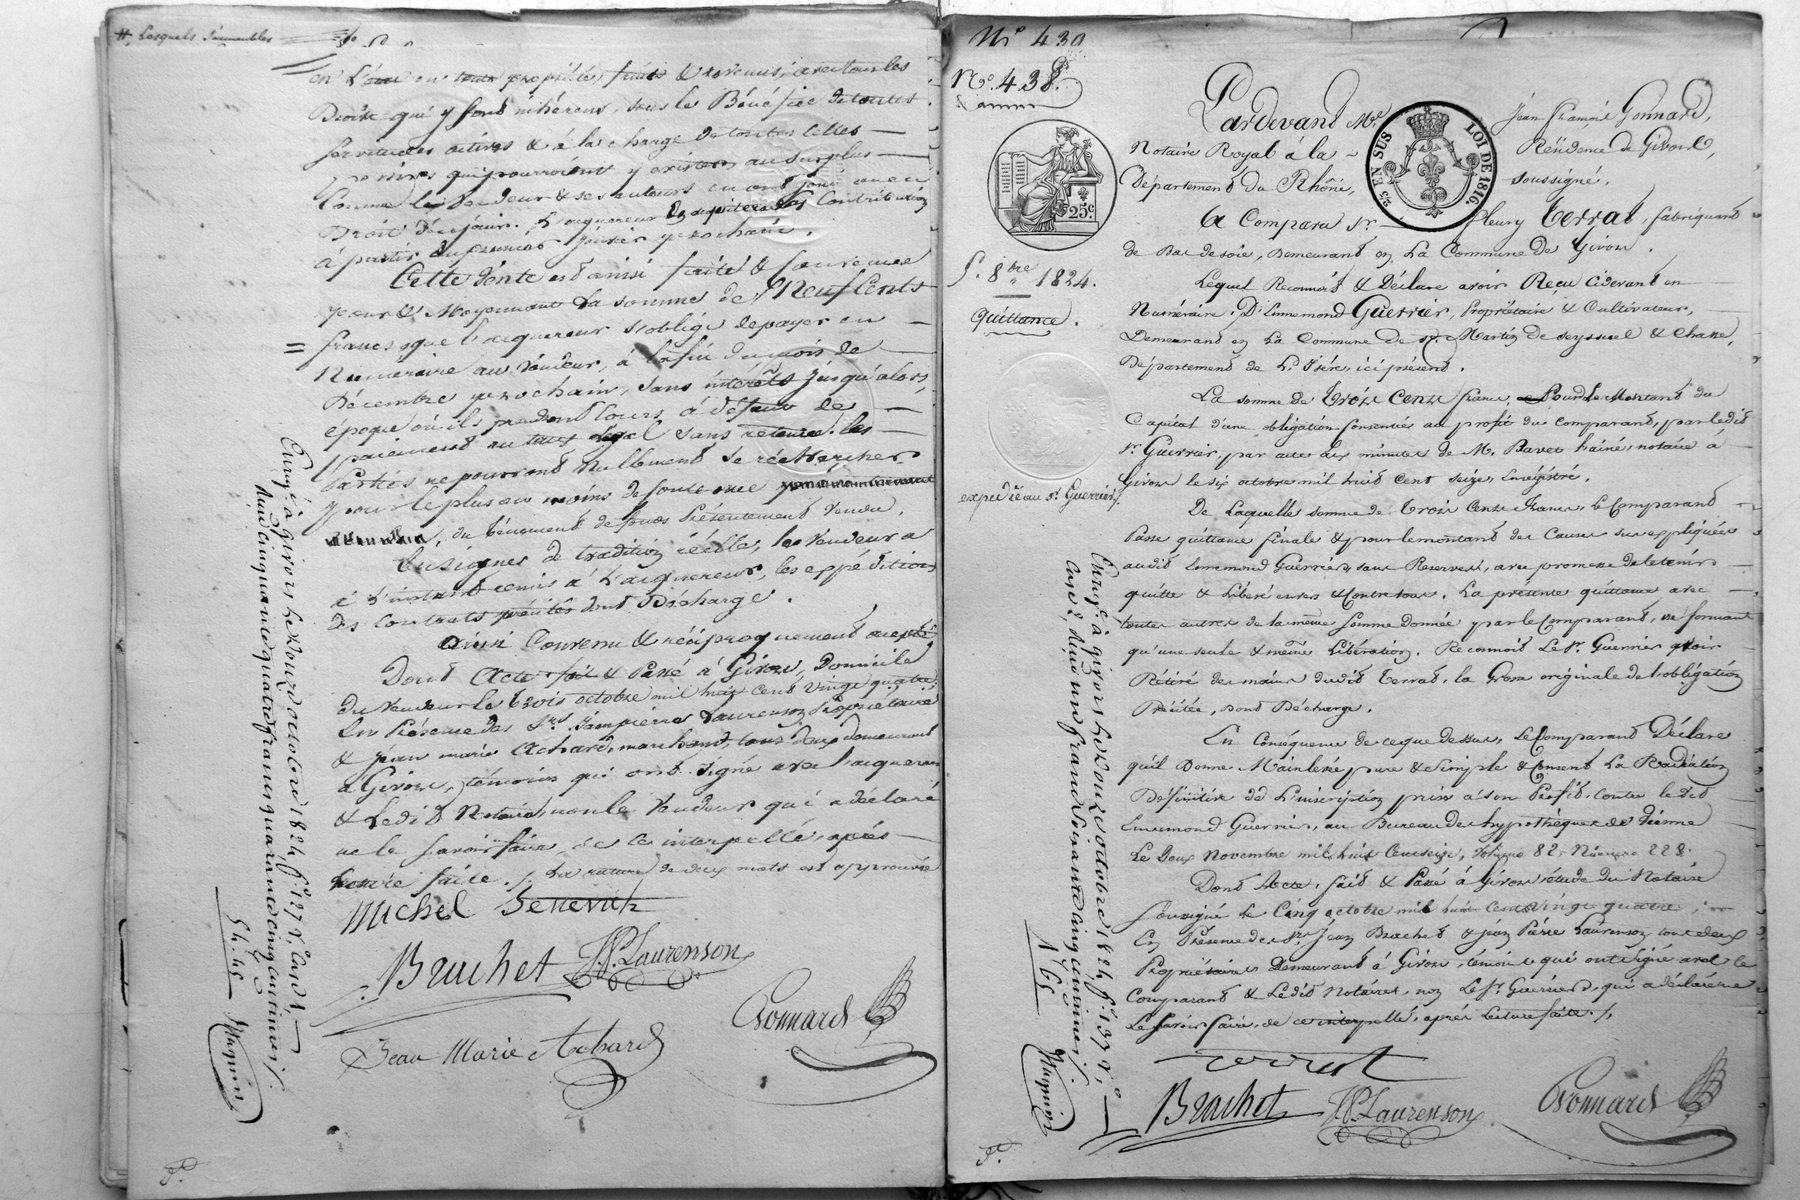 # Lesquels immeubles
en toute propriété, fruits & revenus, avec tous les
Droits qui y sont inhérens, sous le Bénéfice de toutes
servitudes actives & à la charge de toutes celles
passives qui pourroient y exister, au surplus
Comme le Vendeur & ses auteurs en ont joui avec
Droit d'en jouir. L'acquereur en acquittera les Contributions
à partir du premier Janvier prochain.
Cette Vente est ainsi faite & souscrite
pour & Moyennant la somme de Neuf Cents
francs, que l'acquereur s'oblige de payer en
Numéraire au Vendeur, à la fin du mois de
Décembre prochain, sans intérêts jusqu'alors,
époque où ils prendront Cours, à défaut de
paiement au taux légal sans retenue. les
Parties ne pourront nullement se réchercher
pour le plus ou moins de contenance
du ténement de fonds Présentement Vendu.
En signes de tradition réelle, le Vendeur a
à l'instant remis à l'acquereur, les expéditions
des contrats précités dont Décharge.
Ainsi Convenu & réciproquement accepté
Dont Acte fait & Passé à Givors, Domicile
du Vendeur le trois octobre mil huit cent vingt quatre,
En Présence des Srs. Jean pierre Laurenson Propriétaire
& Jean marie Achard, marchand, tous deux demeurant
à Givors, témoins qui ont signé avec l'acquereur
& Ledit Notaire, non le Vendeur qui a déclaré
ne le savoir faire, de ce interpellé, après
lecture faite. /. La rature de deux mots est approuvée
Michel Jenevrik
Brachet J.P. Laurenson
Jean Marie Achard Gonnard
Enreg. à givors le douze octobre 1824, f° 127 v°, Case 1
Reçu cinquante quatre francs quarante cinq centimes /.
54.45
N° 430
N° 438
25 c
5. 8bre 1824.
Quittance.
expediée au Sr. Guerrier /.
25 EN SUS LOI DE 1816.
Pardevant Me. Jean François Gonnard,
Notaire Royal à la Résidence de Givors,
Département du Rhône, soussigné.
A Comparu Sr. fleury Terrat, fabriquant
de Bas de soie, Demeurant en la Commune de Givors.
Lequel Reconnoit & Déclare avoir Reçu Cidevant en
Numéraire, D'Ennemond Guerrier, Propriétaire & Cultivateur,
Demeurant en la Commune de St. Martin de Seyssuel & Chasse,
Département de L'Isère, ici présent.
La somme de Trois Cents francs, Pour le Montant du
Capital d'une obligation consentie au profit du Comparant, par ledit
Sr. Guerrier, par acte aux minutes de M. Bavet l'ainé, notaire à
Givors le six octobre mil huit cent seize, Enrégistré.
De Laquelle somme de trois Cents Francs, le Comparant
Passe quittance finale & pour le montant des Causes sus expliquées
audit Ennemond Guerrier, sans Reserves, avec promesse de le tenir
quitte & Libéré envers & Contre tous. La présente quittance avec
toutes autres de la même somme donnée par le Comparant, ne formant
qu'une seule & même Libération. Reconnoit Le Sr. Guerrier avoir
Rétiré des mains dudit Terrat, la Grosse originale de l'obligation
Précitée, dont Décharge.
En Conséquence de ce que dessus, Le Comparant Déclare
qu'il Donne Mainlevée pure & Simple & Consent La Radiation
Définitive de L'inscription prise à son Profit, contre ledit
Ennemond Guerrier, au Bureau des hypothèques de Vienne
Le Douze Novembre mil huit Cent seize, Volume 82, Numéro 228.
Dont Acte, fait & Passé à Givors étude du Notaire
Soussigné le Cinq octobre mil huit Cent Vingt quatre,
En Présence des Srs. Jean Brachet & Jean Pierre Laurenson tous deux
Propriétaires Demeurant à Givors, témoins qui ont Signé avec le
Comparant & Ledit Notaire, non Le Sr. Guerrier, qui a déclaré ne
Le Savoir faire, de ce interpellé, après Lecture faite. /.
terrat
Brachet J.P. Laurenson Gonnard
Enreg. à givors le douze octobre 1824, f° 137 v°,
Case 2, Reçu un franc soixante cinq centimes /.
1.65